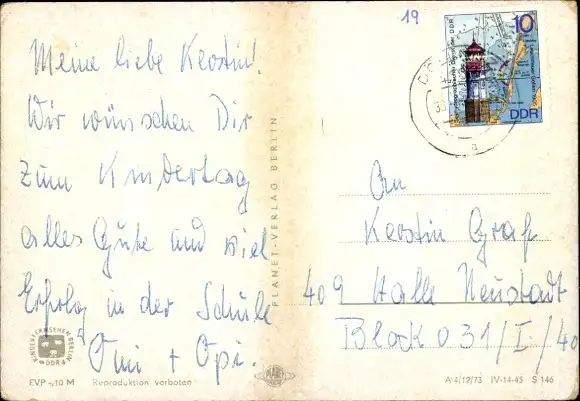 19
10
DDR
Meine liebe Kerstin!
Wir wünschen Dir
zum Kindertag
alles Gute und viel
Erfolg in der Schule
Omi + Opi.
PLANET-VERLAG BERLIN
An
Kerstin Graf
409 Halle Neustadt
Block 031/I/40
KINDERFERNSEHEN BERLIN
DDR
EVP -,10 M Reproduktion verboten
PLANET
A 4/12/73 IV-14-45 S 146